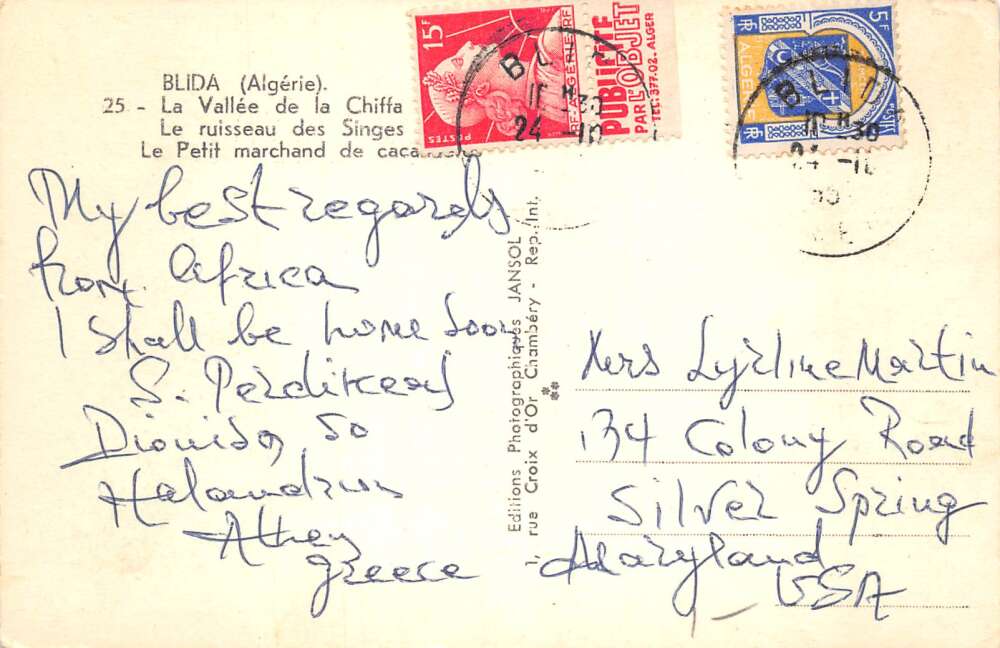 BLIDA (Algérie).
25 - La Vallée de la Chiffa
Le ruisseau des Singes
Le Petit marchand de
My best regards
from Africa
I shall be home soon
S.
Dionisos 50
Halandrion
Athens
greece
Editions Photographiques JANSOL
rue Croix d'Or Chambéry - Rep. Int.
15F
POSTES
RF ALGÉRIE RF
PUBLICITÉ
PAR L'OBJET
TEL: 377.02. ALGER
BLI
24 - 10
5F
RF ALGERIE RF
POSTES
BLID
24 - 10
Mrs Martin
134 Colony Road
Silver Spring
Maryland
USA